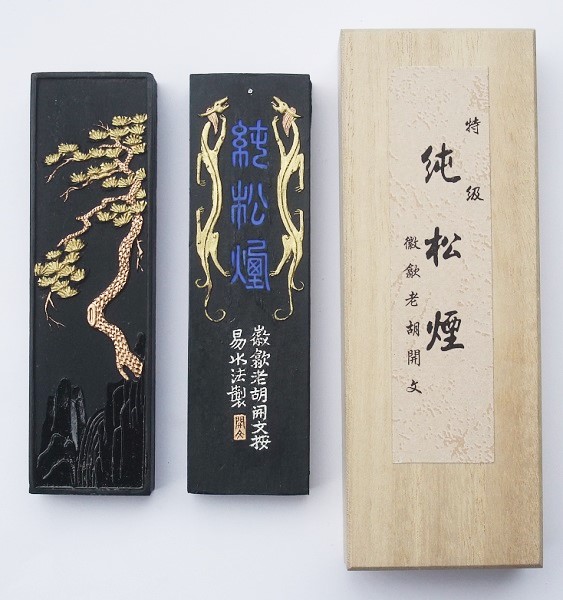 純松煙
徽歙老胡開文按
易水法製
開文
特級
純松煙
徽歙老胡開文